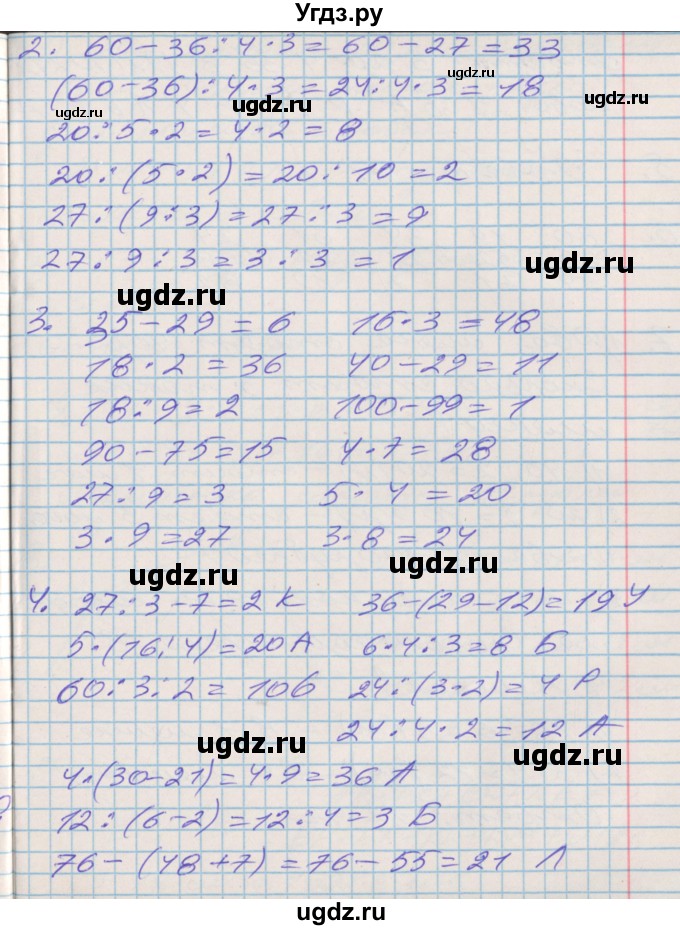 Угдз.ру
2. 60-36:4·3=60-27=33
(60-36):4·3=24:4·3=18
20:5·2=4·2=8
20:(5·2)=20:10=2
27:(9:3)=27:3=9
27:9:3=3:3=1
3. 35-29=6 16·3=48
18·2=36 40-29=11
18:9=2 100-99=1
90-75=15 4·7=28
27:9=3 5·4=20
3·9=27 3·8=24
4. 27:3-7=2 К 36-(29-12)=19 У
5·(16:4)=20 А 6·4:3=8 Б
60:3:2=10б 24:(3·2)=4 Р
24:4·2=12 А
4·(30-21)=4·9=36 А
12:(6-2)=12:4=3 Б
76-(48+7)=76-55=21 Л
ugdz.ru
ugdz.ru
ugdz.ru
ugdz.ru
ugdz.ru
ugdz.ru
ugdz.ru
ugdz.ru
ugdz.ru
ugdz.ru
ugdz.ru
ugdz.ru